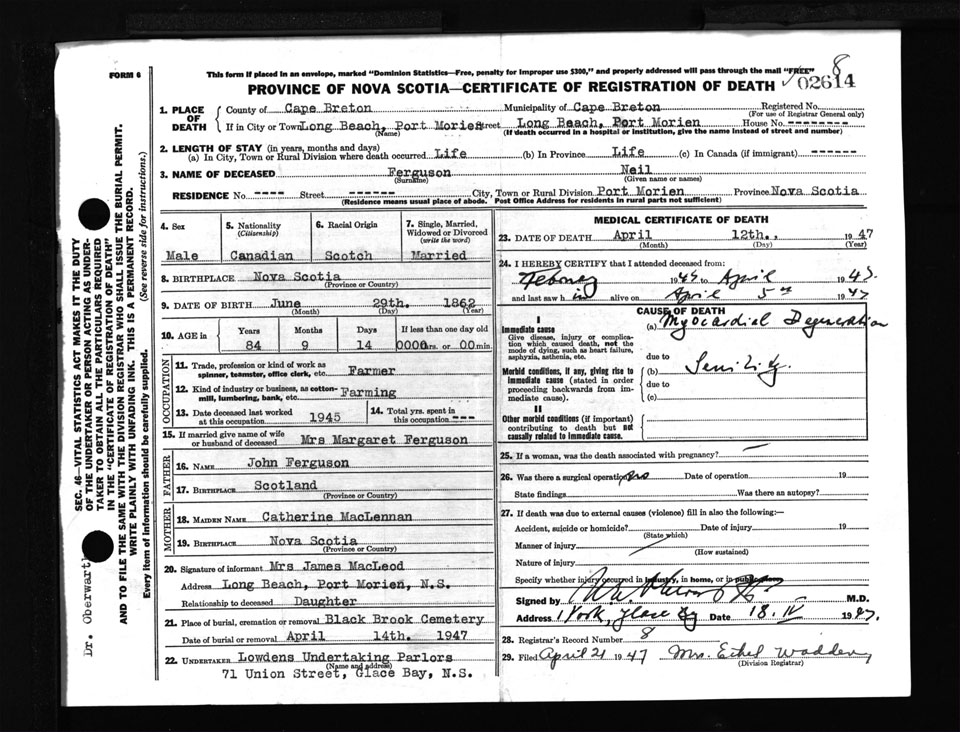 8
FORM 6
This form if placed in an envelope, marked "Dominion Statistics—Free, penalty for improper use $300," and properly addressed will pass through the mail "FREE"
PROVINCE OF NOVA SCOTIA—CERTIFICATE OF REGISTRATION OF DEATH
02614
1. PLACE OF DEATH
County of Cape Breton Municipality of Cape Breton Registered No.
(For use of Registrar General only)
If in City or Town Long Beach, Port Morien Street Long Beach, Port Morien House No. --------
(Name) (If death occurred in a hospital or institution, give the name instead of street and number)
2. LENGTH OF STAY (in years, months and days)
(a) In City, Town or Rural Division where death occurred Life (b) In Province Life (c) In Canada (if immigrant) ------
3. NAME OF DECEASED Ferguson Neil
(Surname) (Given name or names)
RESIDENCE No. ---- Street ------ City, Town or Rural Division Port Morien Province Nova Scotia
(Residence means usual place of abode. Post Office Address for residents in rural parts not sufficient)
4. Sex
Male
5. Nationality (Citizenship)
Canadian
6. Racial Origin
Scotch
7. Single, Married, Widowed or Divorced (write the word)
Married
8. BIRTHPLACE Nova Scotia
(Province or Country)
9. DATE OF BIRTH June 29th. 1862
(Month) (Day) (Year)
10. AGE in
Years Months Days If less than one day old
84 9 14 0000 hrs. or 00 min.
OCCUPATION
11. Trade, profession or kind of work as spinner, teamster, office clerk, etc. Farmer
12. Kind of industry or business, as cotton-mill, lumbering, bank, etc. Farming
13. Date deceased last worked at this occupation 1945
14. Total yrs. spent in this occupation ---
15. If married give name of wife or husband of deceased Mrs Margaret Ferguson
FATHER
16. NAME John Ferguson
17. BIRTHPLACE Scotland
(Province or Country)
MOTHER
18. MAIDEN NAME Catherine MacLennan
19. BIRTHPLACE Nova Scotia
(Province or Country)
20. Signature of informant Mrs James MacLeod
Address Long Beach, Port Morien, N.S.
Relationship to deceased Daughter
21. Place of burial, cremation or removal Black Brook Cemetery
Date of burial or removal April 14th. 1947
22. UNDERTAKER Lowdens Undertaking Parlors
(Name and address)
71 Union Street, Glace Bay, N.S.
MEDICAL CERTIFICATE OF DEATH
23. DATE OF DEATH April 12th., 1947
(Month) (Day) (Year)
24. I HEREBY CERTIFY that I attended deceased from:
1945 to April 1947
and last saw h im alive on April 5th 1947
CAUSE OF DEATH
I
Immediate cause
Give disease, injury or complication which caused death, not the mode of dying, such as heart failure, asphyxia, asthenia, etc.
(a) Myocardial Degeneration
due to
Morbid conditions, if any, giving rise to immediate cause (stated in order proceeding backwards from immediate cause).
(b) Senility.
due to
(c)
II
Other morbid conditions (if important) contributing to death but not causally related to immediate cause.
25. If a woman, was the death associated with pregnancy?
26. Was there a surgical operation? no Date of operation 19
State findings Was there an autopsy?
27. If death was due to external causes (violence) fill in also the following:—
Accident, suicide or homicide? Date of injury 19
(State which)
Manner of injury
(How sustained)
Nature of injury
Specify whether injury occurred in industry, in home, or in public
Signed by M.D.
Address 1 York, Glace Bay Date 18. IV 1947.
28. Registrar's Record Number 8
29. Filed April 21 1947 Mrs. Ethel Wadden
(Division Registrar)
SEC. 46—VITAL STATISTICS ACT MAKES IT THE DUTY
OF THE UNDERTAKER OR PERSON ACTING AS UNDER-
TAKER TO OBTAIN ALL THE PARTICULARS REQUIRED
IN THE "CERTIFICATE OF REGISTRATION OF DEATH"
AND TO FILE THE SAME WITH THE DIVISION REGISTRAR WHO SHALL ISSUE THE BURIAL PERMIT.
WRITE PLAINLY WITH UNFADING INK. THIS IS A PERMANENT RECORD.
Every item of information should be carefully supplied. (See reverse side for instructions.)
Dr. Oberwarth